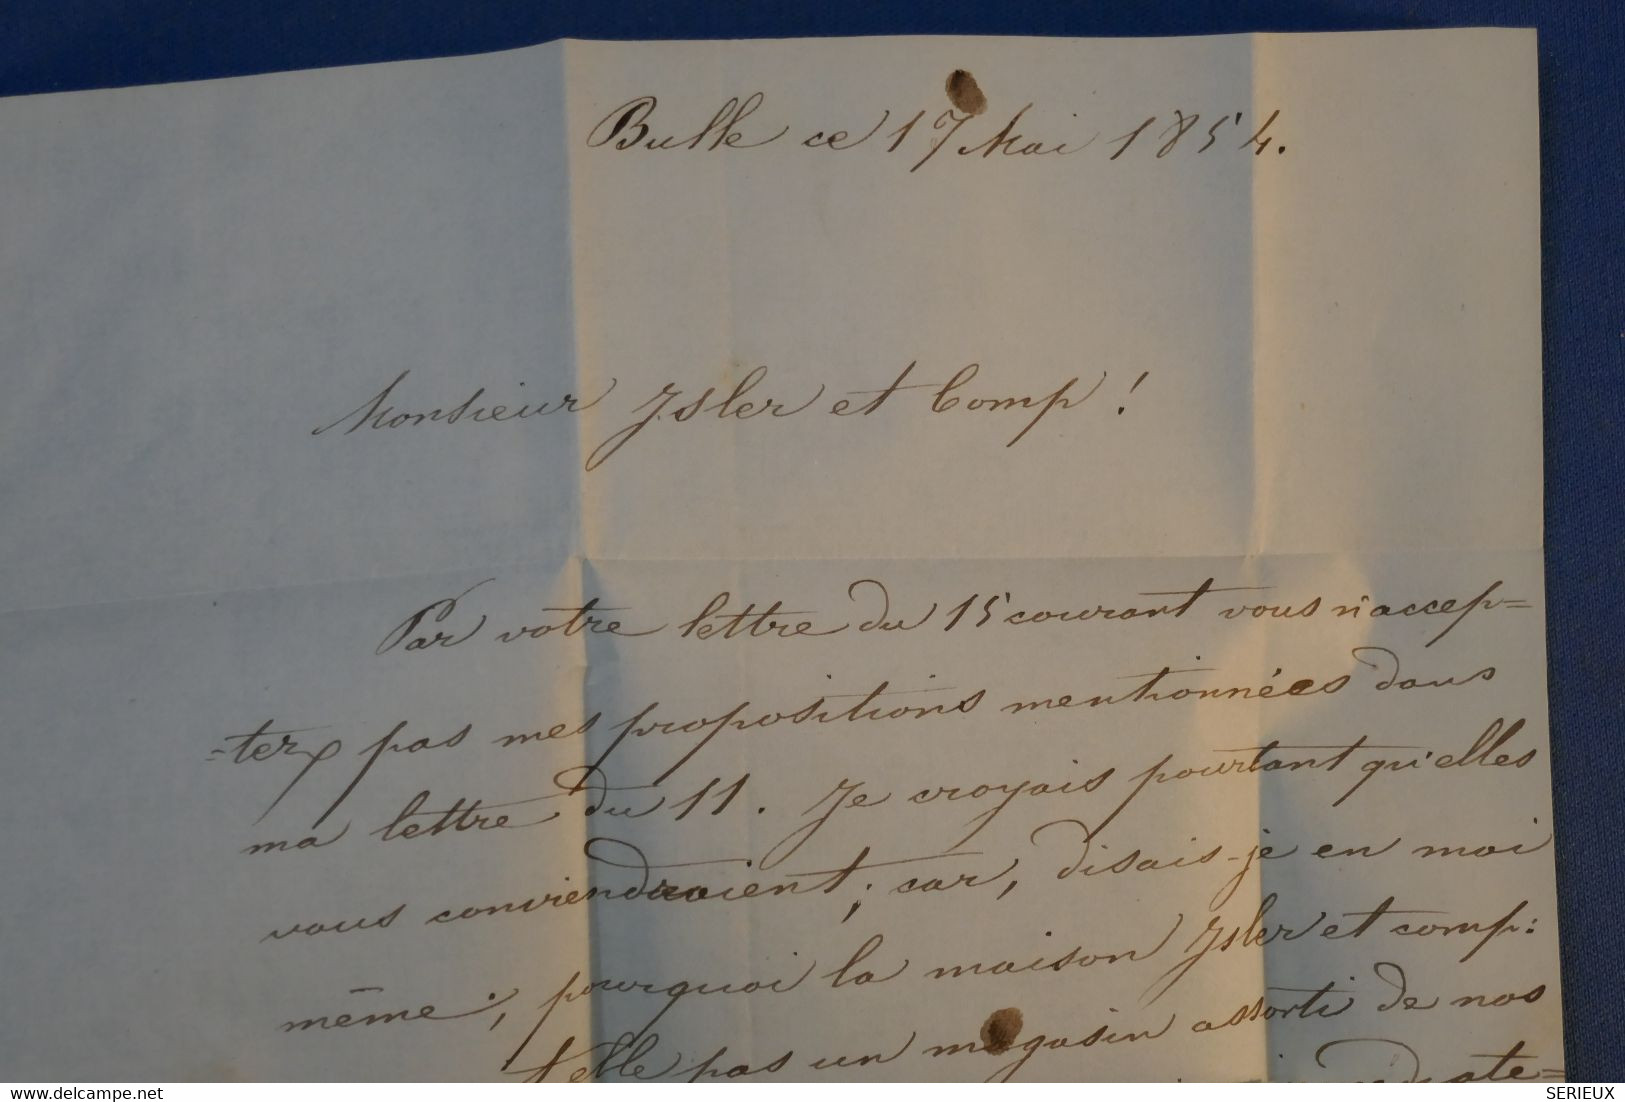 Bulle ce 17 Mai 1854.
Monsieur Isler et Comp !
Par votre lettre du 15 courant vous n'accep=
=tez pas mes propositions mentionnées dans
ma lettre du 11. Je croyais pourtant qu'elles
vous conviendraient; car, disais-je en moi
même; pourquoi la maison Isler et comp:
elle pas un magasin assorti de nos
delcampe.net
SERIEUX